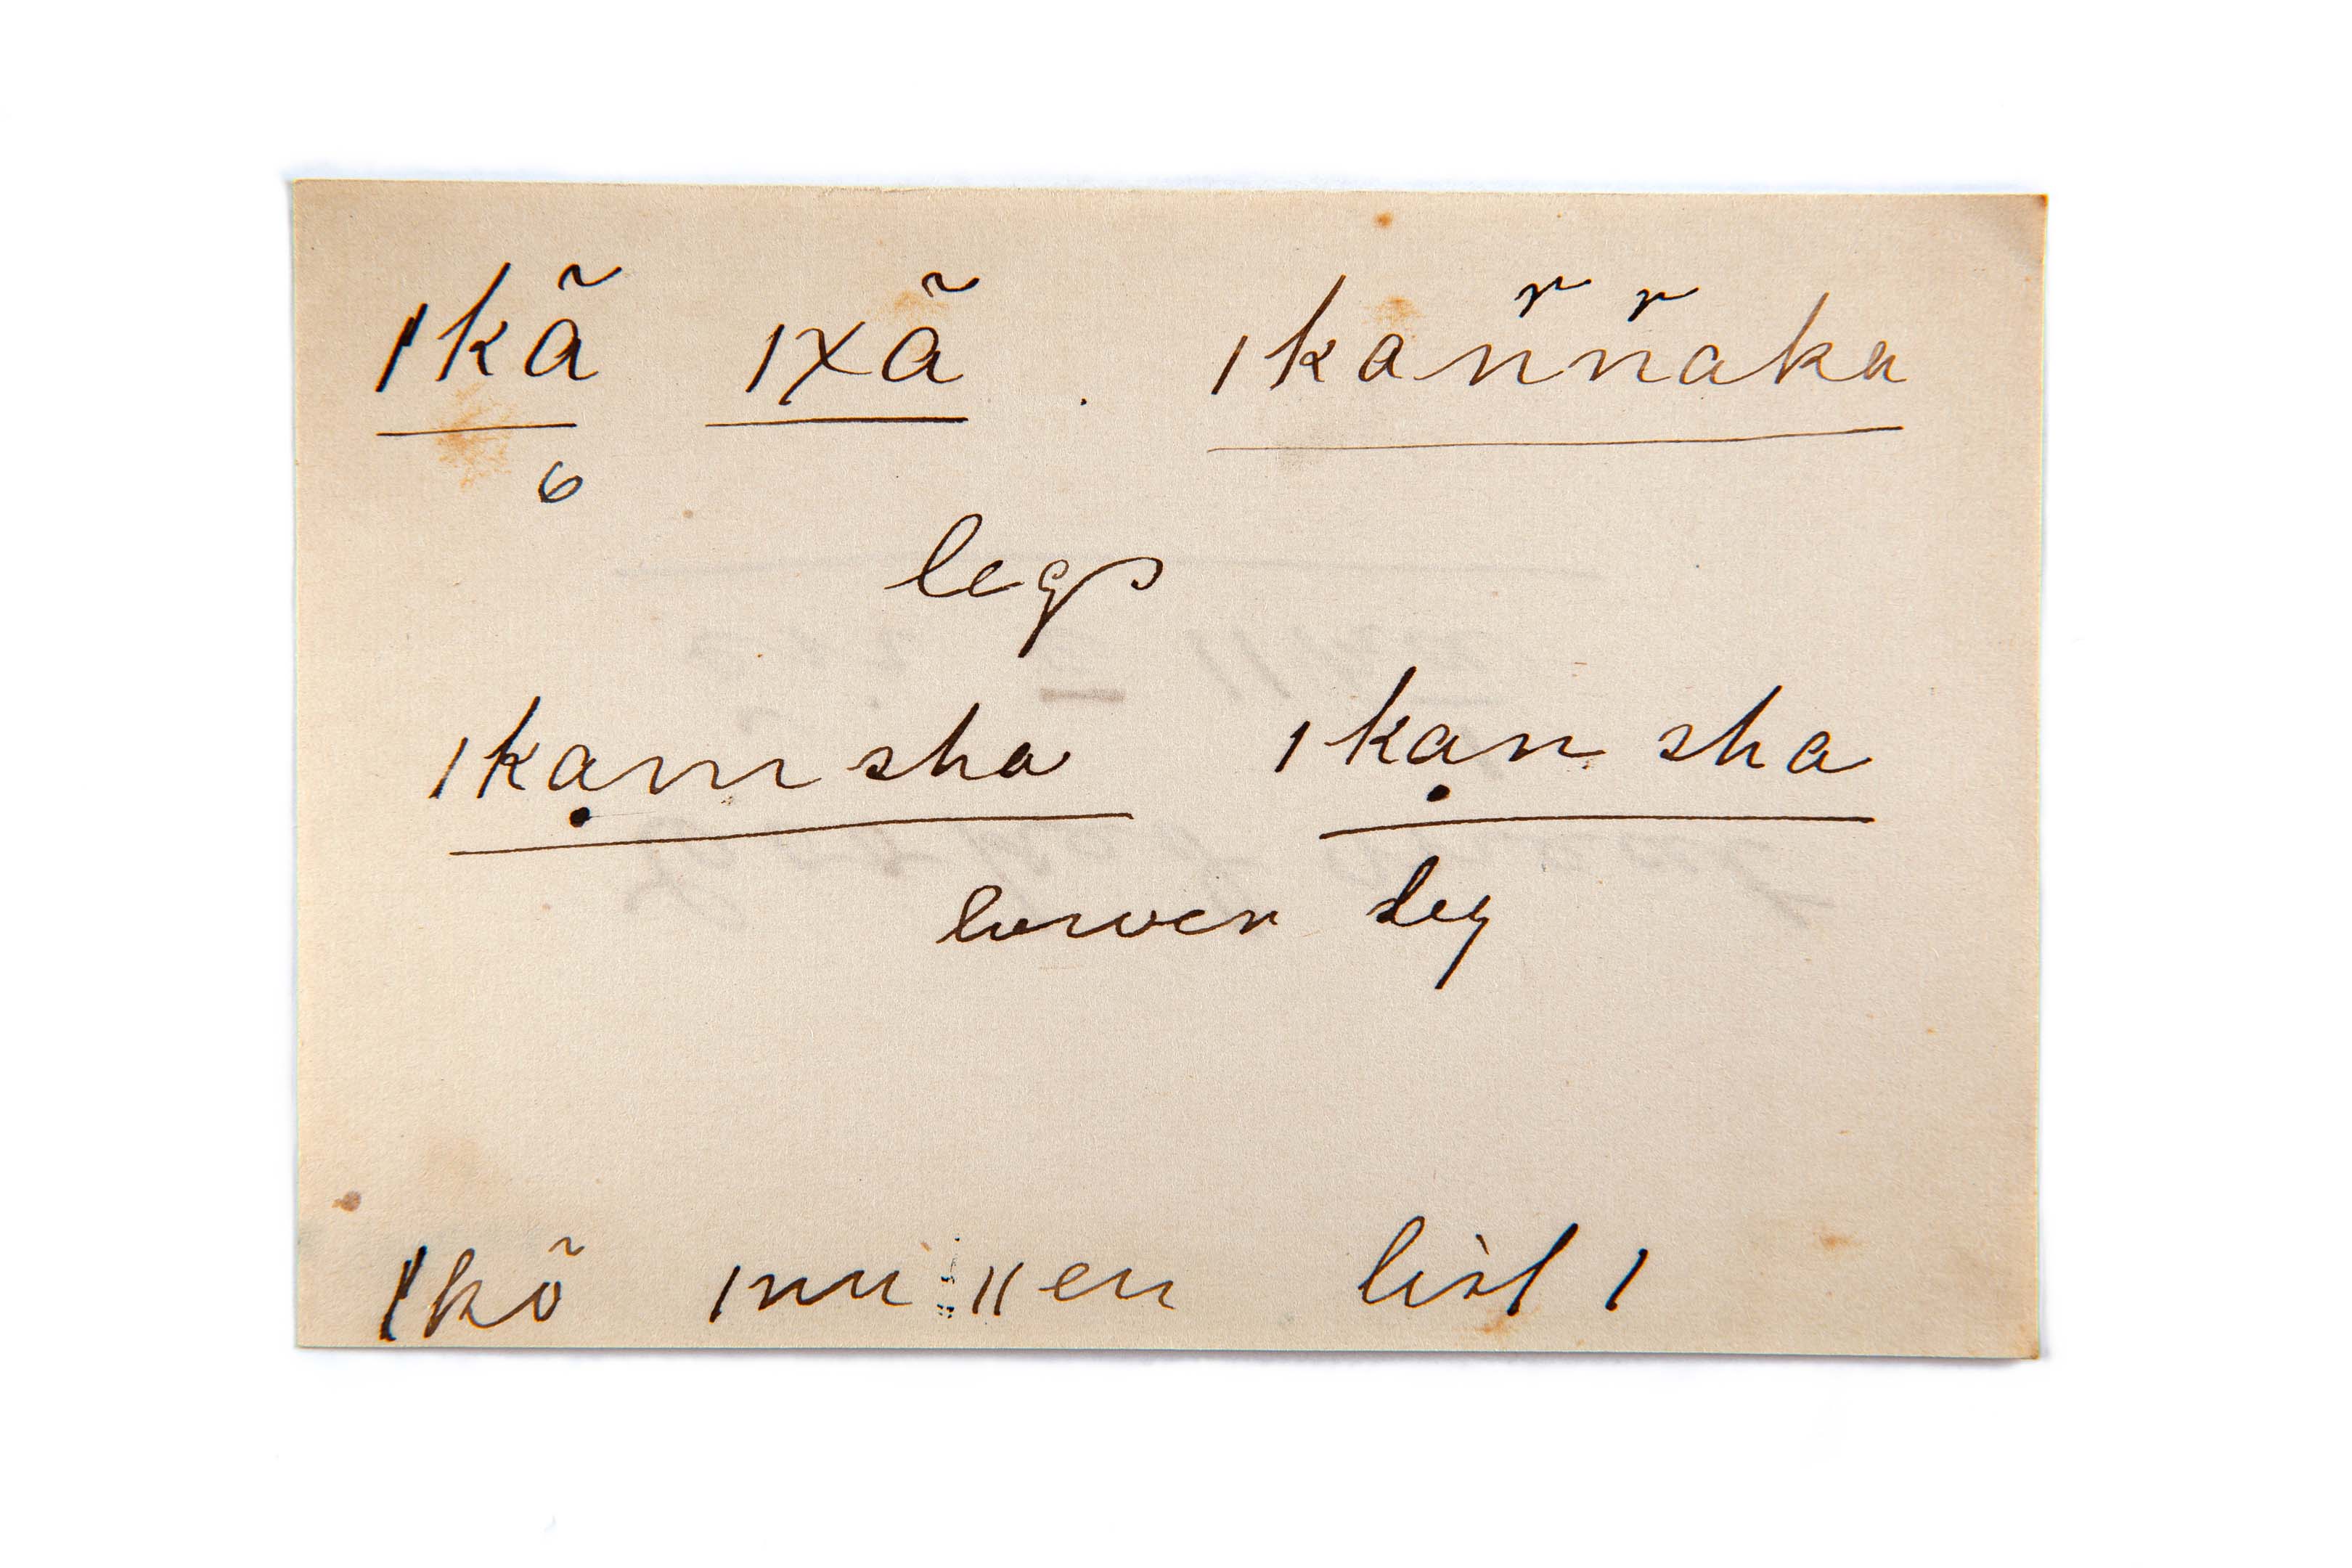 ıkã ıxã . ıkan̈n̈aka
6
legs
ıkạm sha ıkạn sha
lower leg
ıkõ list 1